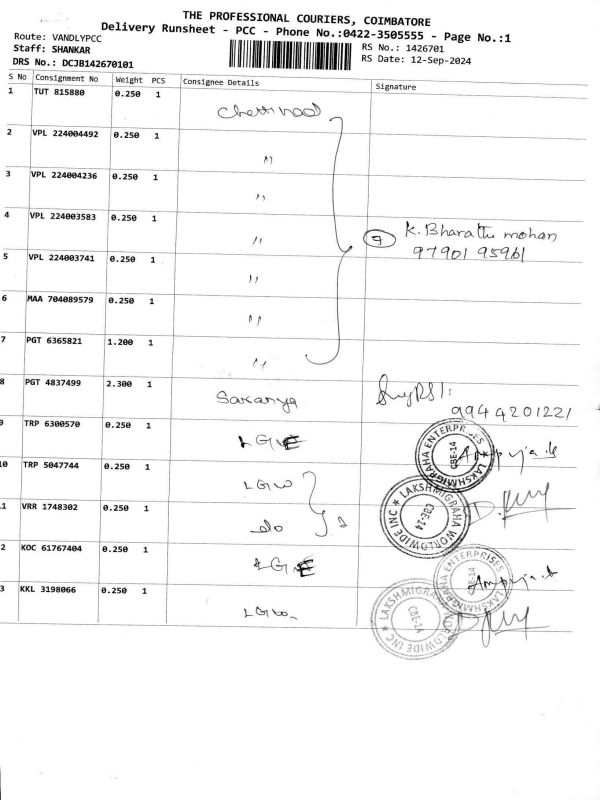 THE PROFESSIONAL COURIERS, COIMBATORE
Delivery Runsheet - PCC - Phone No.:0422-3505555 - Page No.:1
Route: VANDLYPCC
Staff: SHANKAR
DRS No.: DCJB142670101
RS No.: 1426701
RS Date: 12-Sep-2024
S No Consignment No Weight PCS Consignee Details Signature
1 TUT 815880 0.250 1
2 VPL 224004492 0.250 1 "
3 VPL 224004236 0.250 1 "
4 VPL 224003583 0.250 1 "
7 K. Bharathi mohan
97901 95961
5 VPL 224003741 0.250 1 "
6 MAA 704089579 0.250 1 "
7 PGT 6365821 1.200 1 "
8 PGT 4837499 2.300 1 Saranya
9944201221
9 TRP 6300570 0.250 1 LGE
LAKSHMIGRAHA ENTERPRISES CBE-14
10 TRP 5047744 0.250 1 LGW
LAKSHMIGRAHA WORLDWIDE INC CBE-14
1 VRR 1748302 0.250 1 do
2 KOC 61767404 0.250 1 LGE
LAKSHMIGRAHA ENTERPRISES CBE-14
3 KKL 3198066 0.250 1 LGW
LAKSHMIGRAHA WORLDWIDE INC CBE-14